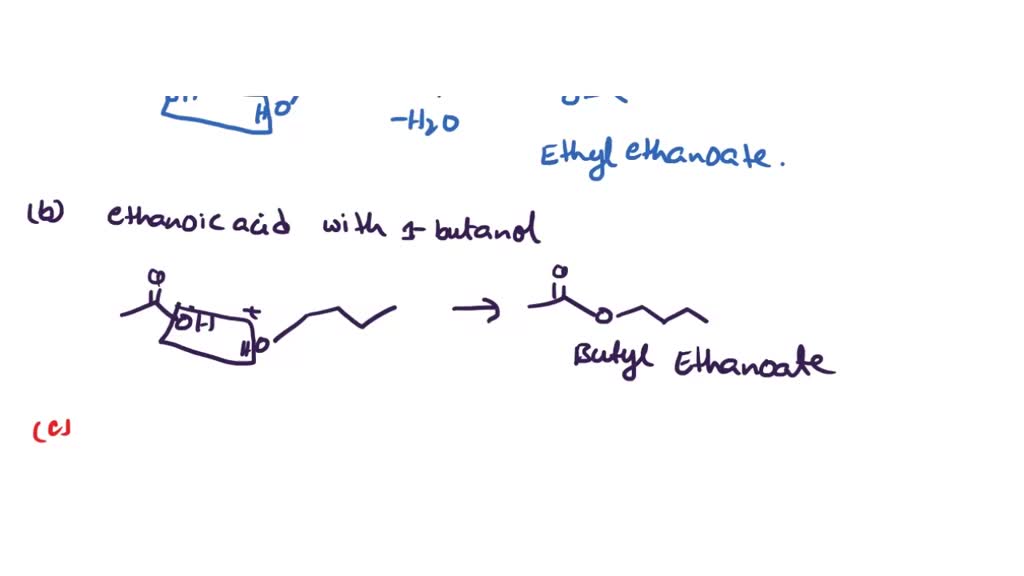 HO
-H2O
Ethyl ethanoate.
(b) ethanoic acid with 1-butanol
O O
OH + HO → O
Butyl Ethanoate
(c)